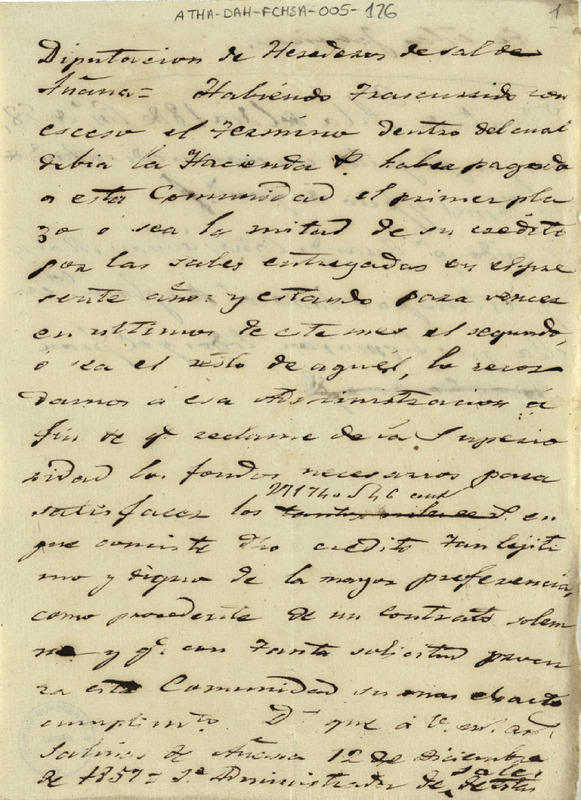 ATHA-DAH-FCHSA-005-126
1
Diputacion de Herederos de sal de
Añana = Habiendo trascurrido con
esceso el termino dentro del cual
debia la Hacienda P. haber pagado
a esta Comunidad el primer pla
zo o sea la mitad de su credito
por las sales entregadas en el pre
sente año: y estando para vencer
en ultimos de este mes el segundo,
o sea el resto de aquel, lo recor
damos á esa Administracion á
fin de q.e reclame de la Superio
ridad los fondos necesarios para
satisfacer los tantos miles r.s en
que consiste dho credito tan lejiti
mo y digno de la mayor preferencia,
como procedente de un contrato solem
ne y q.e con tanta solicitud
esta Comunidad su mas exacto
cumplim.to D.s gue á V. m.s an.s
Salinas de Añana 12 de Diciembre
de 1857 = S.r Administrador de